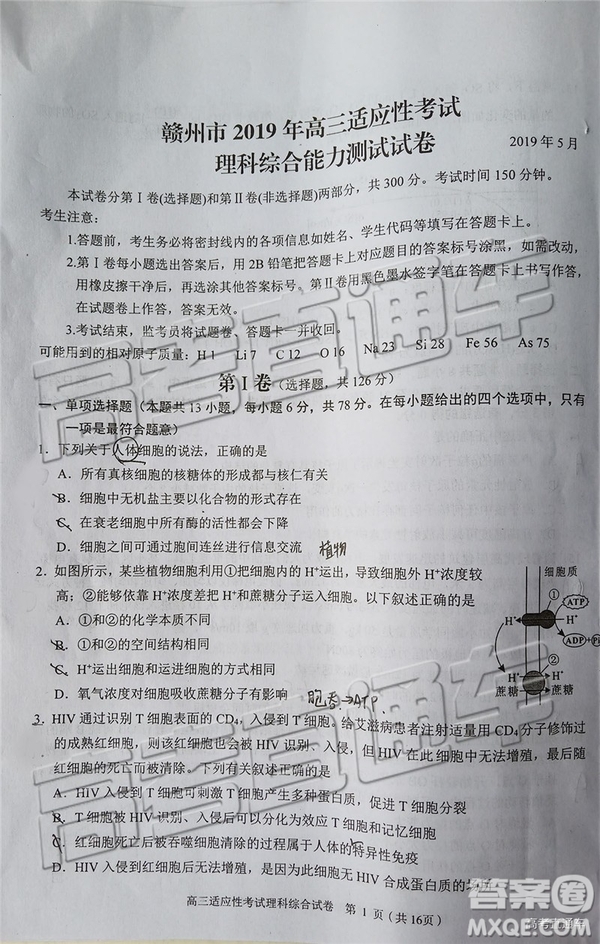 赣州市 2019 年高三适应性考试
理科综合能力测试试卷
2019 年 5 月
本试卷分第 I 卷(选择题)和第 II 卷(非选择题)两部分，共 300 分。考试时间 150 分钟。
考生注意：
1.答题前，考生务必将密封线内的各项信息如姓名、学生代码等填写在答题卡上。
2.第 I 卷每小题选出答案后，用 2B 铅笔把答题卡上对应题目的答案标号涂黑，如需改动，
用橡皮擦干净后，再选涂其他答案标号。第 II 卷用黑色墨水签字笔在答题卡上书写作答，
在试题卷上作答，答案无效。
3.考试结束，监考员将试题卷、答题卡一并收回。
可能用到的相对原子质量：H 1 Li 7 C 12 O 16 Na 23 Si 28 Fe 56 As 75
第 I 卷 (选择题，共 126 分)
一、单项选择题（本题共 13 小题，每小题 6 分，共 78 分。在每小题给出的四个选项中，只有
一项是最符合题意）
1．下列关于人体细胞的说法，正确的是
A．所有真核细胞的核糖体的形成都与核仁有关
B．细胞中无机盐主要以化合物的形式存在
C．在衰老细胞中所有酶的活性都会下降
D．细胞之间可通过胞间连丝进行信息交流 植物
2．如图所示，某些植物细胞利用①把细胞内的 H⁺运出，导致细胞外 H⁺浓度较
高；②能够依靠 H⁺浓度差把 H⁺和蔗糖分子运入细胞。以下叙述正确的是
A．①和②的化学本质不同
B．①和②的空间结构相同
C．H⁺运出细胞和运进细胞的方式相同
D．氧气浓度对细胞吸收蔗糖分子有影响 胞吞→ATP
细胞质
①
ATP
H⁺ H⁺
ADP+Pi
H⁺ H⁺
②
蔗糖 蔗糖
3．HIV 通过识别 T 细胞表面的 CD₄，入侵到 T 细胞。给艾滋病患者注射适量用 CD₄分子修饰过
的成熟红细胞，则该红细胞也会被 HIV 识别、入侵，但 HIV 在此细胞中无法增殖，最后随
红细胞的死亡而被清除。下列有关叙述正确的是
A．HIV 入侵到 T 细胞可刺激 T 细胞产生多种蛋白质，促进 T 细胞分裂
B．T 细胞被 HIV 识别、入侵后可以分化为效应 T 细胞和记忆细胞
C．红细胞死亡后被吞噬细胞清除的过程属于人体的特异性免疫
D．HIV 入侵到红细胞后无法增殖，是因为红细胞无 HIV 合成蛋白质的场所
高三适应性考试理科综合试卷 第 1 页（共 16页）
高考直通车
高考直通车
高考直通车
答案圈
高考直通车